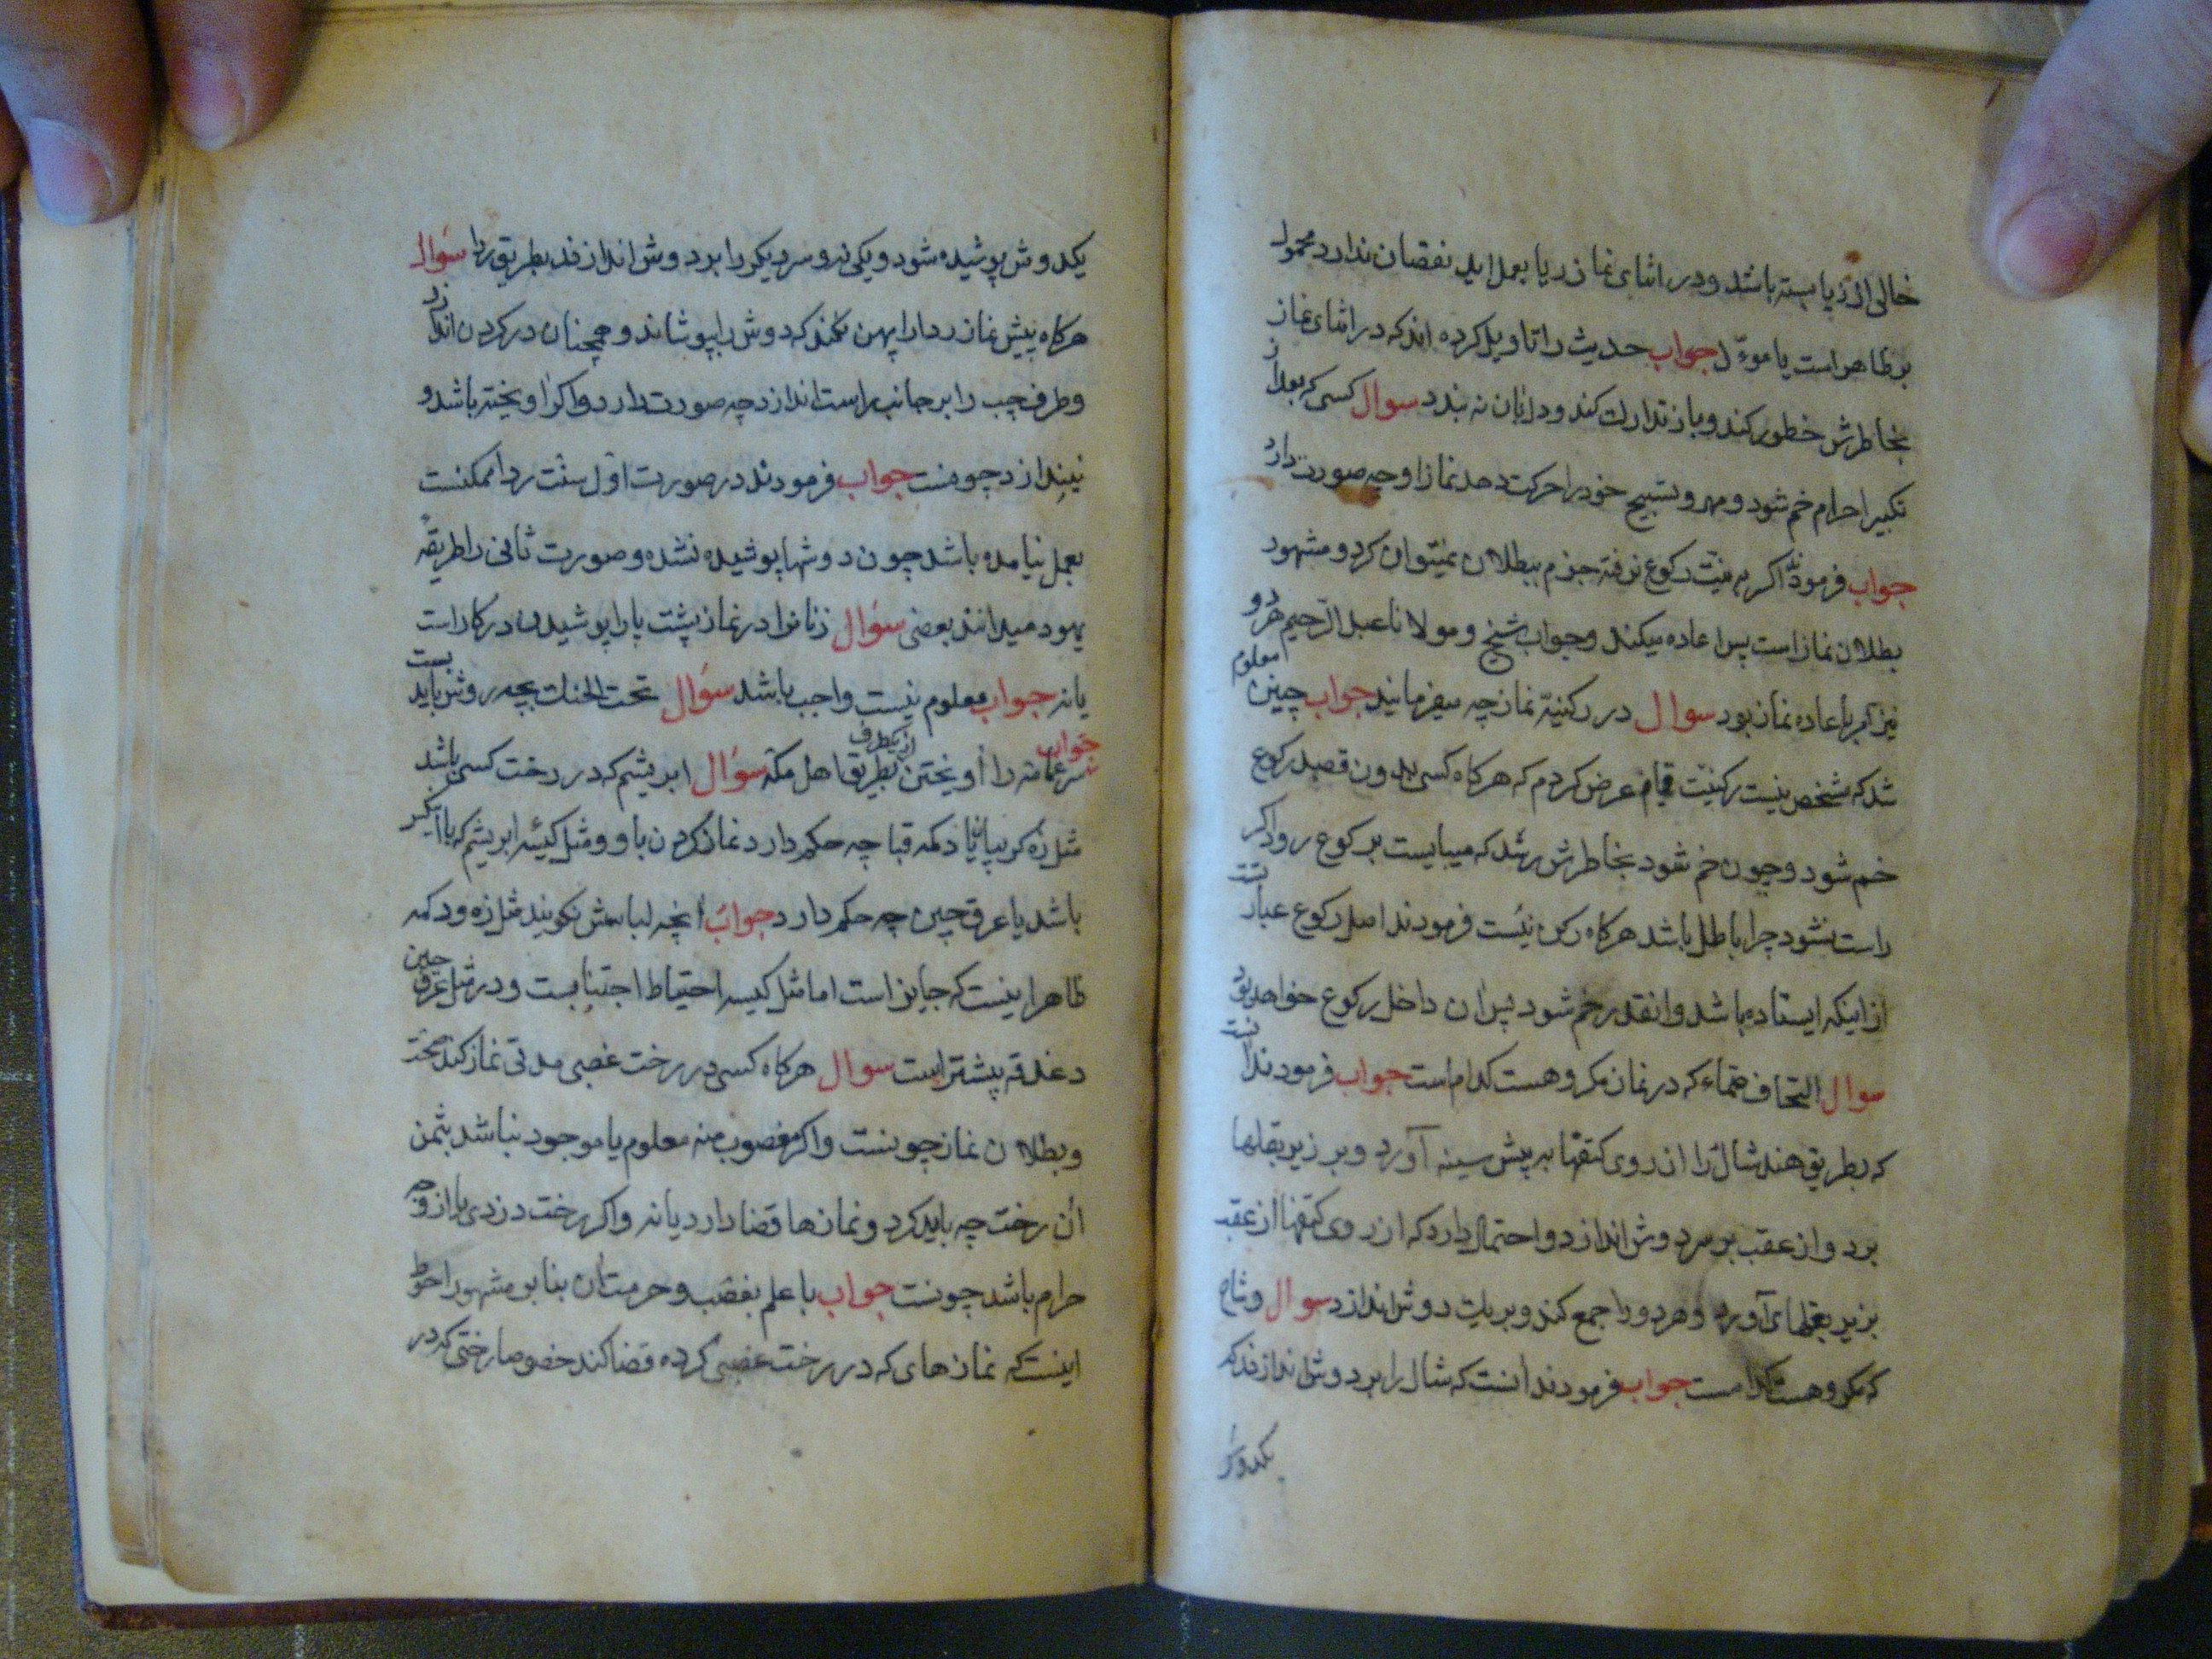 خالی از ریا بسته باشد و در اثنای نماز ریا بعمل اید نقصان ندارد محمول
بر ظاهر است یا موءّل جواب حدیث را تاویل کرده اند که در اثنای نماز
بخاطرش خطور کند و باز تدارک کند و دل بان نه بندد سوال کسی که بعد از
تکبیر احرام خم شود و مهر و تسبیح خود را حرکت دهد نماز او چه صورت دارد
جواب فرمودند اگر به نیت رکوع نرفته جزم ببطلان نمیتوان کرد و مشهور
بطلان نماز است پس اعاده میکند و جواب شیخ و مولانا عبد الرحیم هر دو
نیز امر باعاده نماز بود سوال در رکنیة نماز چه میفرمانید جواب چنین معلوم
شد که مشخص نیست رکنیّت قیام عرض کردم که هر کاه کسی بدون قصد رکوع
خم شود و چون خم شود بخاطرش رسد که میبایست برکوع رود اکر
راست نشود چرا باطل باشد هر کاه رکن نیست فرمودند اصل رکوع عبارتست
از اینکه ایستاده باشد و انقدر خم شود پس ان داخل رکوع خواهد بود
سوال التحاف صماء که در نماز مکروهست کدام است جواب فرمودند انست
که بطریق هند شال را از روی کتفها به پیش سینه آورد و بر زیر بغلها
برد و از عقب بر سر دوش اندازد و احتمال دارد که از روی کتفها از عقب
بزیر بغلهای آورد و هر دو را جمع کند و بر یک دوش اندازد سوال وشاح
که مکروهست کدامست جواب فرمودند انست که شال را بر دوش اندازند که
یکدوش
یکدوش پوشیده شود و یکی نه و سر دیکر را بر دوش اندازند بطریق ردا سؤال
هر کاه پیش نماز ردا را پهن نکند که دوش را بپوشاند و همچنان در کردن اندازد
و طرف چپ را بر جانب راست اندازد چه صورت دارد و اکر اویخته باشد و
نیندازد چونست جواب فرمودند در صورت اوّل سنّت ردا ممکنست
بعمل نیامده باشد چون دوشها پوشیده نشده و صورت ثانی را طریقه
یهود میدانند بعضی سؤال زنانرا در نماز پشت پا را پوشیدن در کار است
یا نه جواب معلوم نیست واجب باشد سؤال تحت الحنک بچه روش باید بست
جواب سر عمامه را از یکطرف اویختن بطریق اهل مکّه سؤال ابریشم که در رخت کسی باشد
مثل زه کریبان یا دکمه قبا چه حکم دارد نماز کردن باو و مثل کیسه ابریشم که با
باشد یا عرقچین چه حکم دارد جواب انچه لباسش نکویند مثل زه و دکمه
ظاهر اینست که جایز است اما مثل کیسه احتیاط اجتنابست و در مثل عرقچین
دغدقه پیشتر است سوال هر کاه کسی در رخت غصبی مدتی نماز کند صحت
و بطلان نماز چونست و اکر مغصوب منه معلوم یا موجود نباشد بثمن
ان رخت چه باید کرد و نمازها قضا دارد یا نه و اکر رخت دزدی یا از وجه
حرام باشد چونست جواب با علم بغصب و حرمت ان بنا بر مشهور احوط
اینست که نمازهای که در رخت غصبی کرده قضا کند خصوصا رختی که در